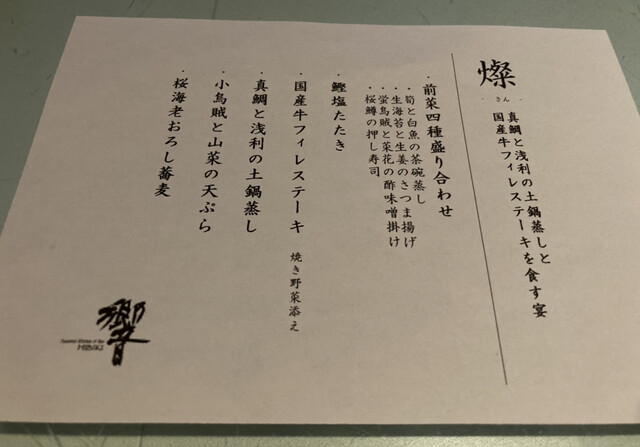 燦
・さん・
真鯛と浅利の土鍋蒸しと
国産牛フィレステーキを食す宴
・前菜四種盛り合わせ
・筍と白魚の茶碗蒸し
・生海苔と生姜のさつま揚げ
・蛍烏賊と菜花の酢味噌掛け
・桜鱒の押し寿司
・鰹塩たたき
・国産牛フィレステーキ 焼き野菜添え
・真鯛と浅利の土鍋蒸し
・小烏賊と山菜の天ぷら
・桜海老おろし蕎麦
響
HIBIKI